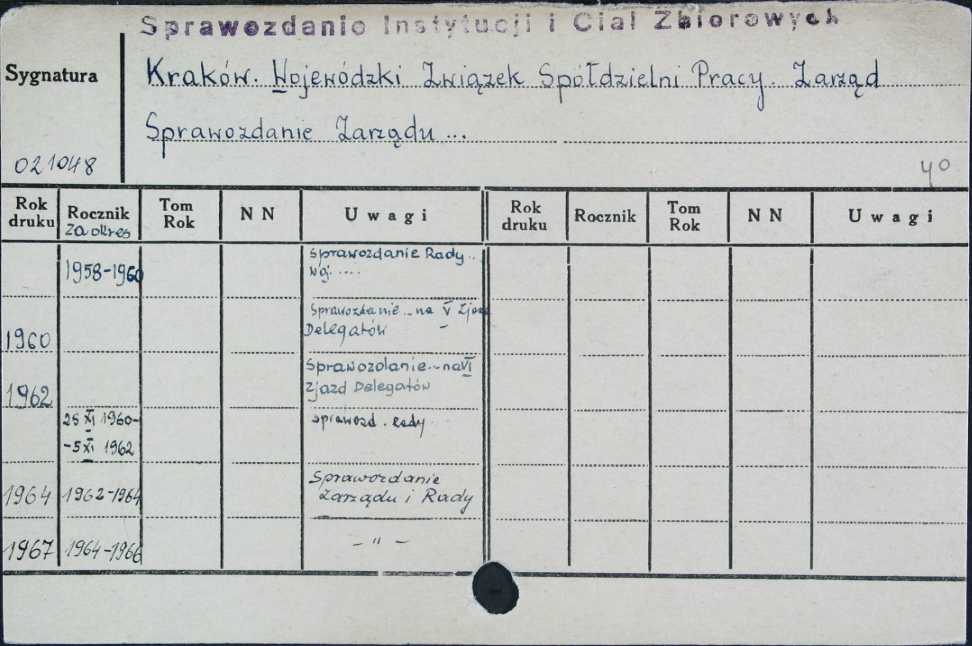 Sprawozdanie Instytucji i Ciał Zbiorowych
Sygnatura
Kraków. Wojewódzki Związek Spółdzielni Pracy. Zarząd
Sprawozdanie Zarządu ...
021048
40
Rok druku Rocznik Tom Rok N N Uwagi Rok druku Rocznik Tom Rok N N Uwagi
Za okres
1958-1960 Sprawozdanie Rady ..
Woj. ....
1960 Sprawozdanie .. na V Zjazd
Delegatów
1962 Sprawozdanie .. na VI
Zjazd Delegatów
25 XI 1960- sprawozd. Rady
-5 XI 1962
1964 1962-1964 Sprawozdanie
Zarządu i Rady
1967 1964-1966 - " -